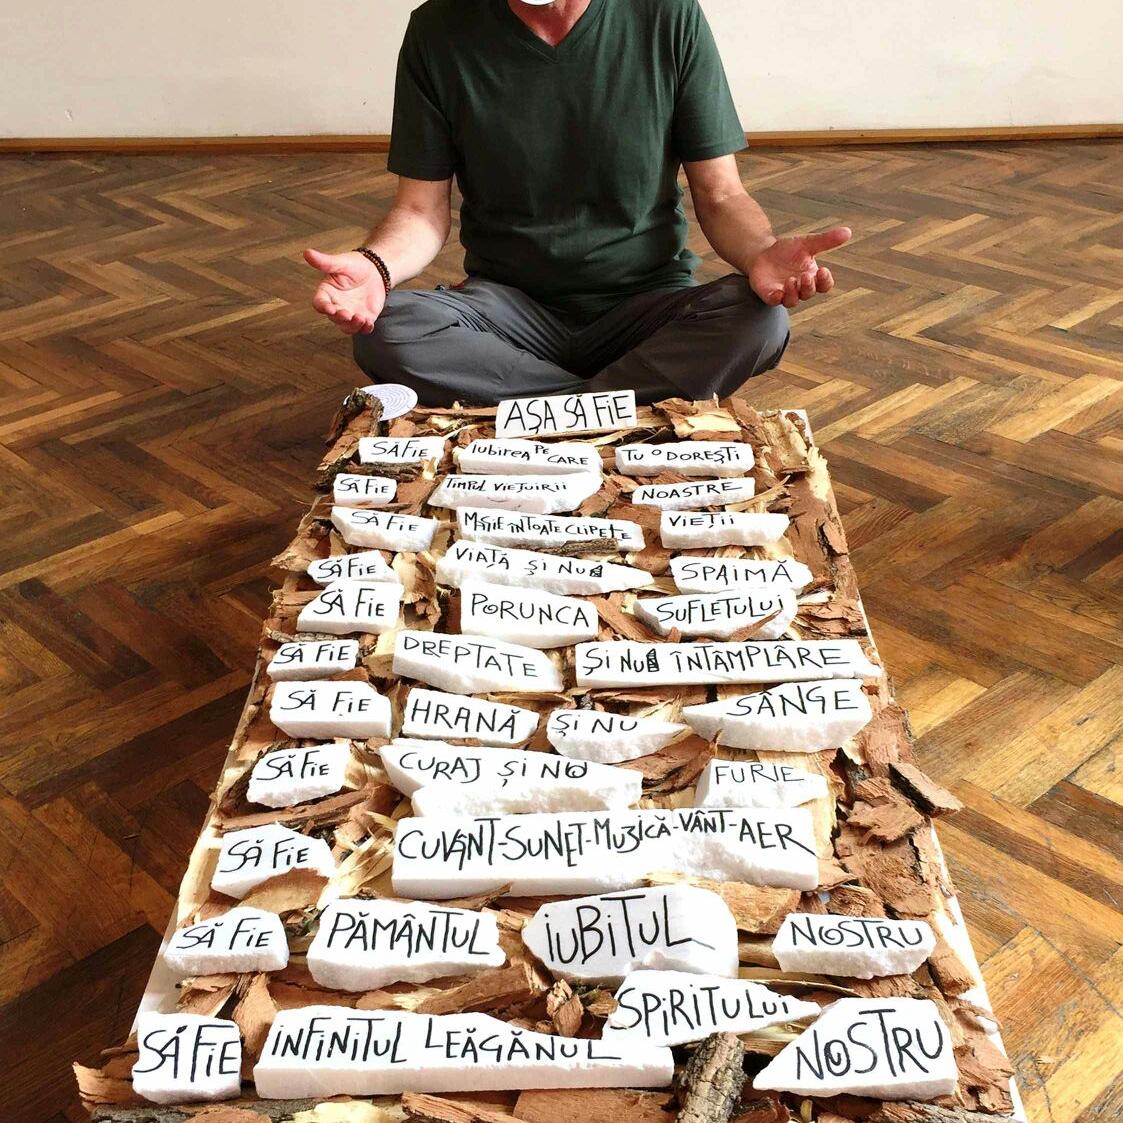 AȘA SĂ FiE
SĂ FiE iubirea PE CARE TU O DOREȘTi
SĂ FiE TiMPUL VIEȚUIRII NOASTRE
SĂ FiE ÎN TOATE CLIPELE VIEȚII
SĂ FiE VIAȚĂ ȘI NU SPAIMĂ
SĂ FiE PORUNCA SUFLETULUI
SĂ FiE DREPTATE ȘI NU ÎNTÂMPLARE
SĂ FiE HRANĂ ȘI NU SÂNGE
SĂ FiE CURAJ ȘI NU FURIE
SĂ FiE CUVÂNT-SUNET-MUZICĂ-VÂNT-AER
SĂ FiE PĂMÂNTUL iUBiTUL NOSTRU
SĂ FiE iNFiNiTUL LEAGĂNUL SPiRiTULUi NOSTRU